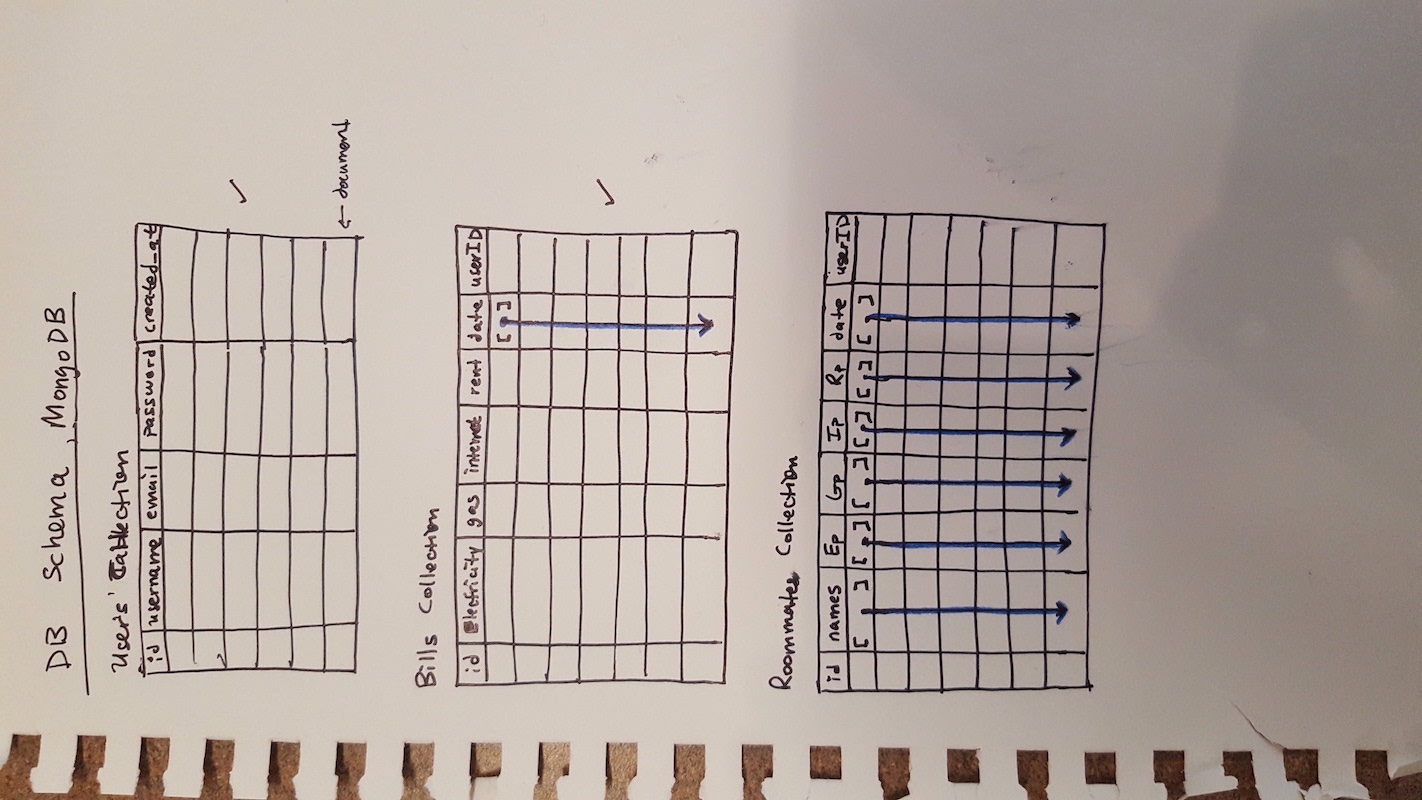 DB Schema, MongoDB
User's Collection
id username email password created_at
← document
Bills Collection
id electricity gas internet rent date userID
[ , ]
Roommates Collection
id names Ep Gp Ip Rp date userID
[ , ] [ , ] [ , ] [ , ] [ , ] [ , ]